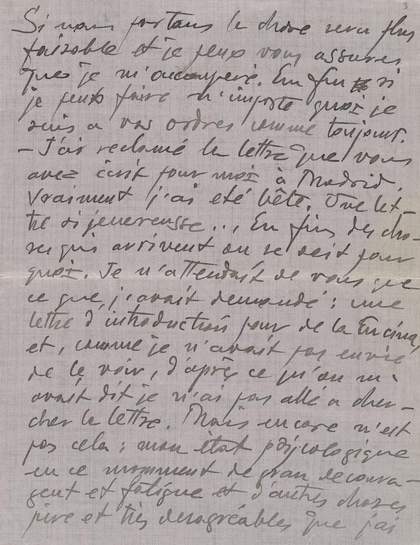 Si nous partons la chose sera plus
faisable et je peux vous assurer
que je m'occuperé. En fin si
je peux faire n'importe quoi je
suis a vos ordres comme toujours.
– J'ai reclamé la lettre que vous
avez écrit pour moi à Madrid.
Vraiment j'ai eté bête. Une let-
tre si jenereusse... En fin des cho-
ses qui arrivent on ne sait pour
quoi. Je n'attendait de vous que
ce que j'avait demandé: une
lettre d'introduction pour de la Encina,
et, comme je n'avait pas envie
de le voir, d'après ce qu'on m'a-
vait dit je n'ai pas allé a cher-
cher la lettre. Mais encore n'est
pas cela: mon état psicologique
en ce momment de gran decoura-
gent et fatigue et d'autres choses
pire et très desagréables que j'ai